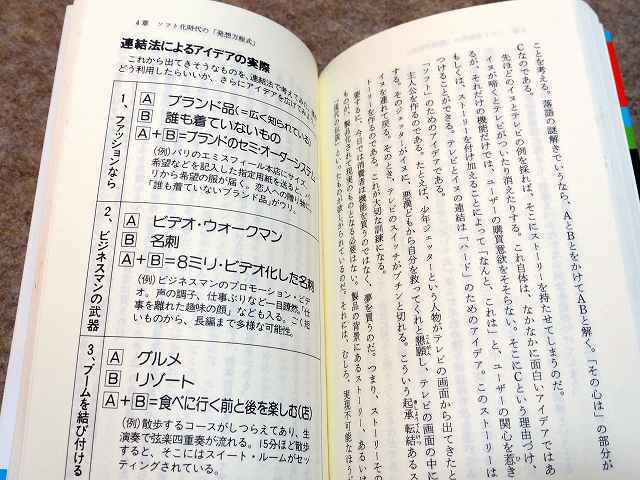 ことを考える。落語の謎解きでいうなら、AとBとをかけてABと解く。「その心は」の部分が
Cなのである。
先ほどのイヌとテレビの例を採れば、そこにストーリーを持たせてしまうのだ。
イヌが啼くとテレビがついたり消えたりする。これ自体は、なかなかに面白いアイデアではあ
るが、それだけの機能だけでは、ユーザーの購買意欲をそそらない。そこにCという理由づけ、
もしくは、ストーリーを付け加えることによって「なんと、これは」と、ユーザーの関心を惹き
つけることができる。テレビとイヌの連結は「ハード」のためのアイデア。このストーリーは
「ソフト」のためのアイデアである。
主人公を作るのである。たとえば、少年ジェッターという人物がテレビの画面から出てきたと
する。そのジェッターがイヌに、悪漢どもから自分を救ってくれと懇願し、テレビの画面の中に
イヌを連れて戻る。そのとき、テレビのスイッチがプチンと切れる。こういう起承転結あるス
トーリーを作るのである。これが大切な訓練になる。
要するに、今日では消費者は機能を買うのではなく、夢を買うのだ。つまり、ストーリーその
ものだ。製品化されて現実のものとなる必要はない。製品の背景にあるストーリー、あるいは
それには、むしろ、実現不可能なほうが
4章 ソフト化時代の「発想方程式」
連結法によるアイデアの実際
これから出てきそうなものを、連結法で考えてみ
どう利用したらいいか、さらにアイデアを広げてみ
1、ファッションなら
A ブランド品(=広く知られている)
B 誰も着ていないもの
A+B=ブランドのセミオーダーシステム
(例)パリのエミスフィール本店にサイズ、
希望などを記入した指定用紙を送ると、パ
リから希望の服が届く。恋人への贈り物に
「誰も着ていないブランド品」がウリ。
2、ビジネスマンの武器
A ビデオ・ウォークマン
B 名刺
A+B=8ミリ・ビデオ化した名刺
(例)ビジネスマンのプロモーション・ビデ
オ。声の調子、仕事ぶりなど一目瞭然。「仕
事を離れた趣味の顔」なども入る。ごく短
いものから、長編まで多様な可能性。
3、ブームを結び付ける
A グルメ
B リゾート
A+B=食べに行く前と後を楽しむ(店)
(例)散歩するコースがしつらえてあり、生
演奏で弦楽四重奏が流れる。15分ほど散歩
すると、そこにはスイート・ルームがセッ
ティングされている。